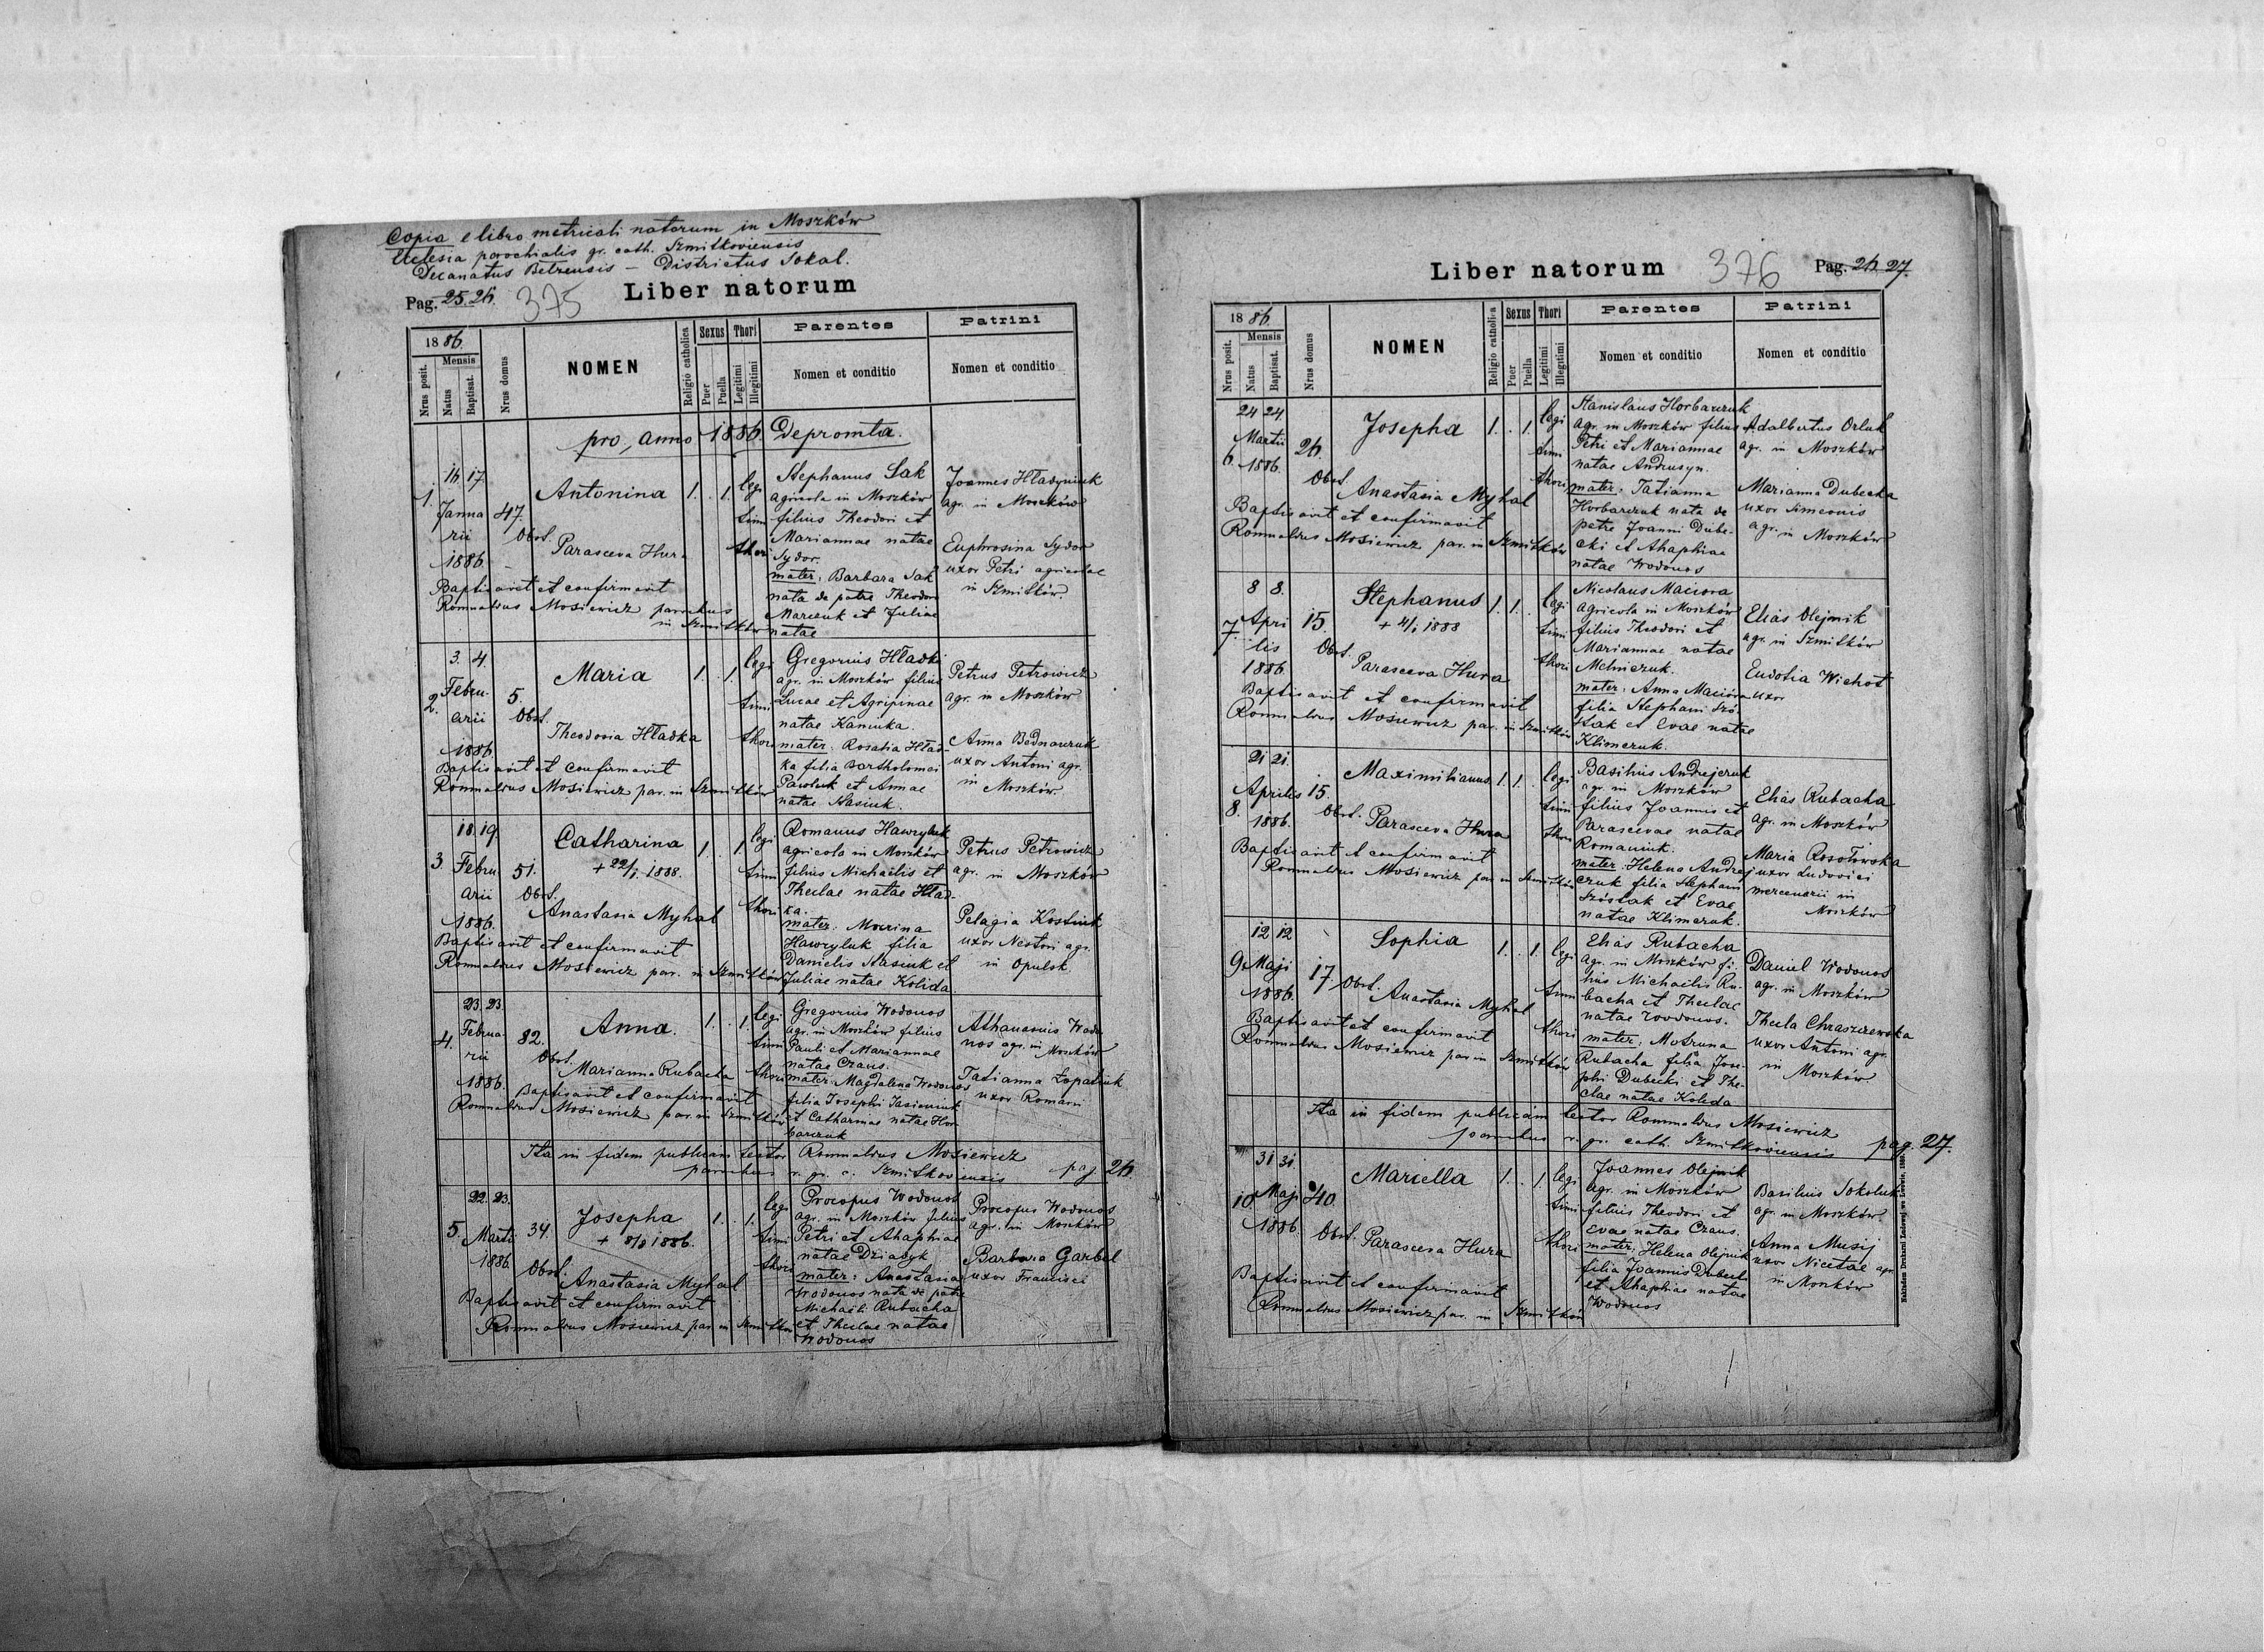 Copia e libro metricali natorum in Moszków
Ecclesia parochialis gr. cath. Szmitkoviensis
Decanatus Belzensis — Districtus Sokal.
Pag. 25. 26. 375
Liber natorum
1886.
Nrus posit.
Mensis
Natus
Baptisat.
Nrus domus
NOMEN
Religio catholica
Sexus
Puer
Puella
Thori
Legitimi
Illegitimi
Parentes
Nomen et conditio
Patrini
Nomen et conditio
pro anno 1886. Depromta.
1.
16. 17.
Janua
rii
1886.
47.
Antonina
1. . 1.
legi
timi
thori
Obst.
Parasceva Hura
Baptisavit et confirmavit
Romualdus Mosiewicz parochus
in Szmitków
Stephanus Sak
agricola in Moszków
filius Theodori et
Mariannae natae
Sydor.
mater: Barbara Sak
nata de patre Theodoro
Marczuk et Juliae
natae
Joannes Hladyniuk
agr. in Moszków
Euphrosina Sydor
uxor Petri agricolae
in Szmitków.
2.
3. 4.
Febru
arii
1886.
5.
Maria
1. . 1.
legi
timi
thori
Obst.
Theodosia Hładka
Baptisavit et confirmavit
Romualdus Mosiewicz par. in Szmitków
Gregorius Hładki
agr. in Moszków filius
Lucae et Agripinae
natae Kaniuka.
mater: Rosalia Hład-
ka filia Bartholomei
Pawluk et Annae
natae Stasiuk.
Petrus Petrowicz
agr. in Moszków
Anna Bednarczuk
uxor Antoni agr.
in Moszków
3
18. 19.
Febru
arii
1886.
51.
Catharina
+ 22/1 1888.
1. . 1.
legi
timi
thori
Obst.
Anastasia Myhal
Baptisavit et confirmavit
Romualdus Mosiewicz par. in Szmitków
Romanus Hawryluk
agricola in Moszków
filius Michaelis et
Theclae natae Hład-
ka.
mater: Marina
Hawryluk filia
Danielis Stasiuk et
Juliae natae Kolida
Petrus Petrowicz
agr. in Moszków
Pelagia Kostiuk
uxor Nestori agr.
in Opulsk
4.
23. 23
Februa
rii
1886.
82.
Anna.
1. . 1.
legi
timi
thori
Obst.
Marianna Rubacha
Baptisavit et confirmavit
Romualdus Mosiewicz par. in Szmitków
Gregorius Wodonos
agr. in Moszków filius
Pauli et Mariannae
natae Czaus.
mater: Magdalena Wodonos
filia Josephi Jasieniuk
et Catharinae natae Hor-
barczuk
Athanasius Wodo
nos agr. in Moszków
Tatianna Łopatiuk
uxor Romani
Ita in fidem publicam testor Romualdus Mosiewicz
parochus r. gr. c. Szmitkoviensis pag. 26.
5.
22. 23.
Martii
1886.
34.
Josepha
+ 8/8 1886.
1. . 1.
legi
timi
thori
Obst.
Anastasia Myhal
Baptisavit et confirmavit
Romualdus Mosiewicz par. in Szmitków
Procopus Wodonos
agr. in Moszków filius
Petri et Ahaphiae
natae Dziadyk
mater: Anastasia
Wodonos nata de patre
Michaeli Rubacha
et Theclae natae
Wodonos
Procopus Wodonos
agr. in Moszków
Barbara Garbel
uxor Francisci
Liber natorum 376 Pag. 26 27.
1886.
Nrus posit.
Mensis
Natus
Baptisat.
Nrus domus
NOMEN
Religio catholica
Sexus
Puer
Puella
Thori
Legitimi
Illegitimi
Parentes
Nomen et conditio
Patrini
Nomen et conditio
6.
24 24.
Martii
1886.
26.
Josepha
1. . 1.
legi
timi
thori
Obst.
Anastasia Myhal
Baptisavit et confirmavit
Romualdus Mosiewicz par. in Szmitków
Stanislaus Horbarczuk
agr. in Moszków filius
Petri et Mariannae
natae Andrusyn.
mater: Tatianna
Horbarczuk nata de
patre Joanni Dube-
cki et Ahaphiae
natae Wodonos
Adalbertus Orluk
agr. in Moszków
Marianna Dubecka
uxor Simeonis
agr. in Moszków
7.
8 8.
Apri
lis
1886.
15.
Stephanus
+ 4/1 1888
1. 1. .
legi
timi
thori
Obst.
Parasceva Hura
Baptisavit et confirmavit
Romualdus Mosiewicz par. in Szmitków
Nicolaus Maciora
agricola in Moszków
filius Theodori et
Mariannae natae
Melniczuk.
mater: Anna Maciora
filia Stephani Szó-
stak et Evae natae
Klimczuk.
Elias Olejnik
agr. in Szmitków
Eudotia Wichot
uxor
8.
21 21.
Aprilis
1886.
15.
Maximilianus
1. 1. .
legi
timi
thori
Obst.
Parasceva Hura
Baptisavit et confirmavit
Romualdus Mosiewicz par. in Szmitków
Basilius Andrejczuk
agr. in Moszków
filius Joannis et
Parascevae natae
Romaniuk.
mater. Helena Andrej
czuk filia Stephani
Szóstak et Evae
natae Klimczuk.
Elias Rubacha
agr. in Moszków
Maria Rosołowska
uxor Ludovici
mercenarii in
Moszków
9.
12 12
Maji
1886.
17.
Sophia
1. . 1.
legi
timi
thori
Obst.
Anastasia Myhal
Baptisavit et confirmavit
Romualdus Mosiewicz par. in Szmitków
Elias Rubacha
agr. in Moszków fi-
lius Michaelis Ru-
bacha et Theclae
natae Wodonos.
mater: Motruna
Rubacha filia Jose-
phi Dubecki et The-
clae natae Kolida
Daniel Wodonos
agr. in Moszków
Thecla Chraszczewska
uxor Antoni agr.
in Moszków
Ita in fidem publicam testor Romualdus Mosiewicz
parochus r. gr. cath. Szmitkoviensis pag. 27.
10
31 31.
Maji
1886
40.
Mariella
1. . 1.
legi
timi
thori
Obst.
Parasceva Hura
Baptisavit et confirmavit
Romualdus Mosiewicz par. in Szmitków
Joannes Olejnik
agr. in Moszków
filius Theodori et
Evae natae Czaus.
mater: Helena Olejnik
filia Joannis Dubecki
et Ahaphiae natae
Wodonos
Basilius Sokoluk
agr. in Moszków.
Anna Musij
uxor Nicetae agr.
in Moszków
Nakładem Drukarni Ludowej we Lwowie.